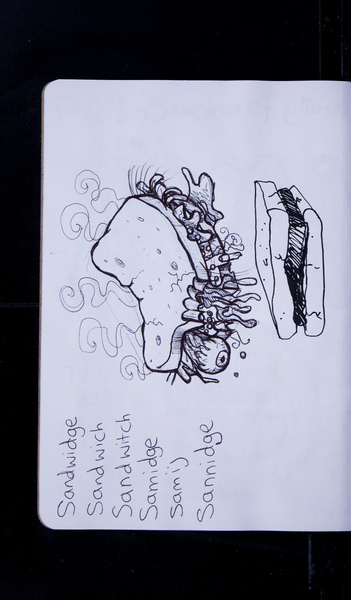 Sandwidge
Sandwich
Sandwitch
Samidge
Samij
Sannidge